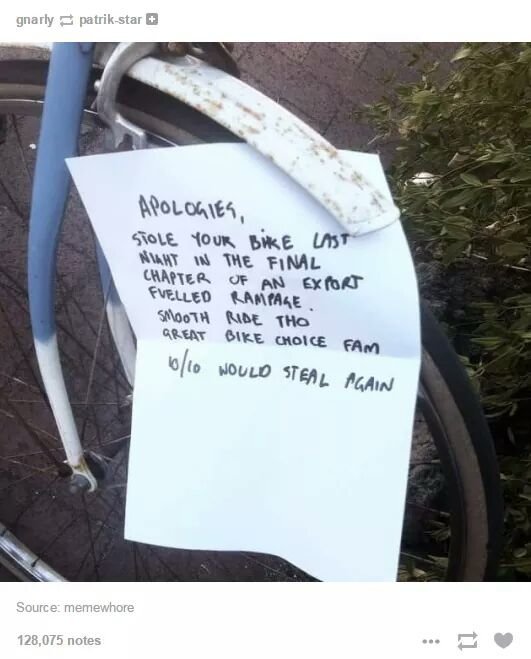 gnarly patrik-star
APOLOGIES,
STOLE YOUR BIKE LAST
NIGHT IN THE FINAL
CHAPTER OF AN EXPORT
FUELLED RAMPAGE.
SMOOTH RIDE THO
GREAT BIKE CHOICE FAM
10/10 WOULD STEAL AGAIN
Source: memewhore
128,075 notes